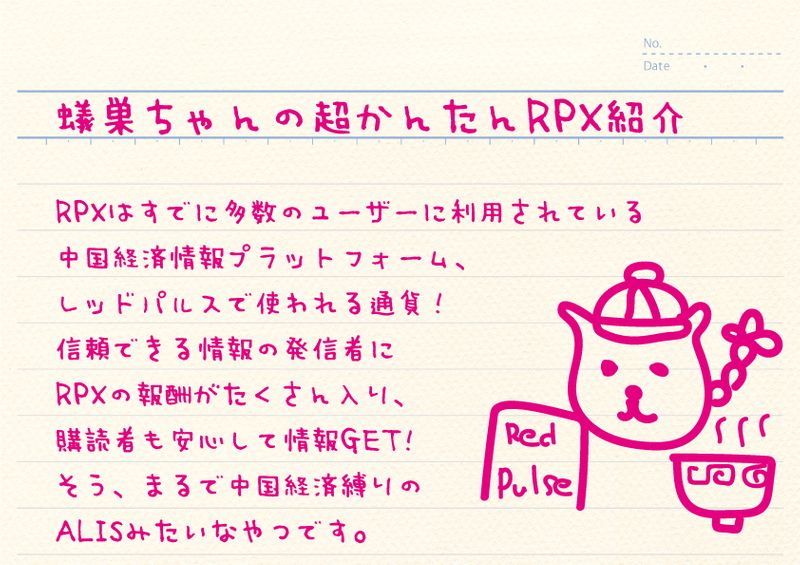 No.
Date
蟻巣ちゃんの超かんたんRPX紹介
RPXはすでに多数のユーザーに利用されている
中国経済情報プラットフォーム、
レッドパルスで使われる通貨！
信頼できる情報の発信者に
RPXの報酬がたくさん入り、
購読者も安心して情報GET!
そう、まるで中国経済縛りの
ALISみたいなやつです。
Red
Pulse